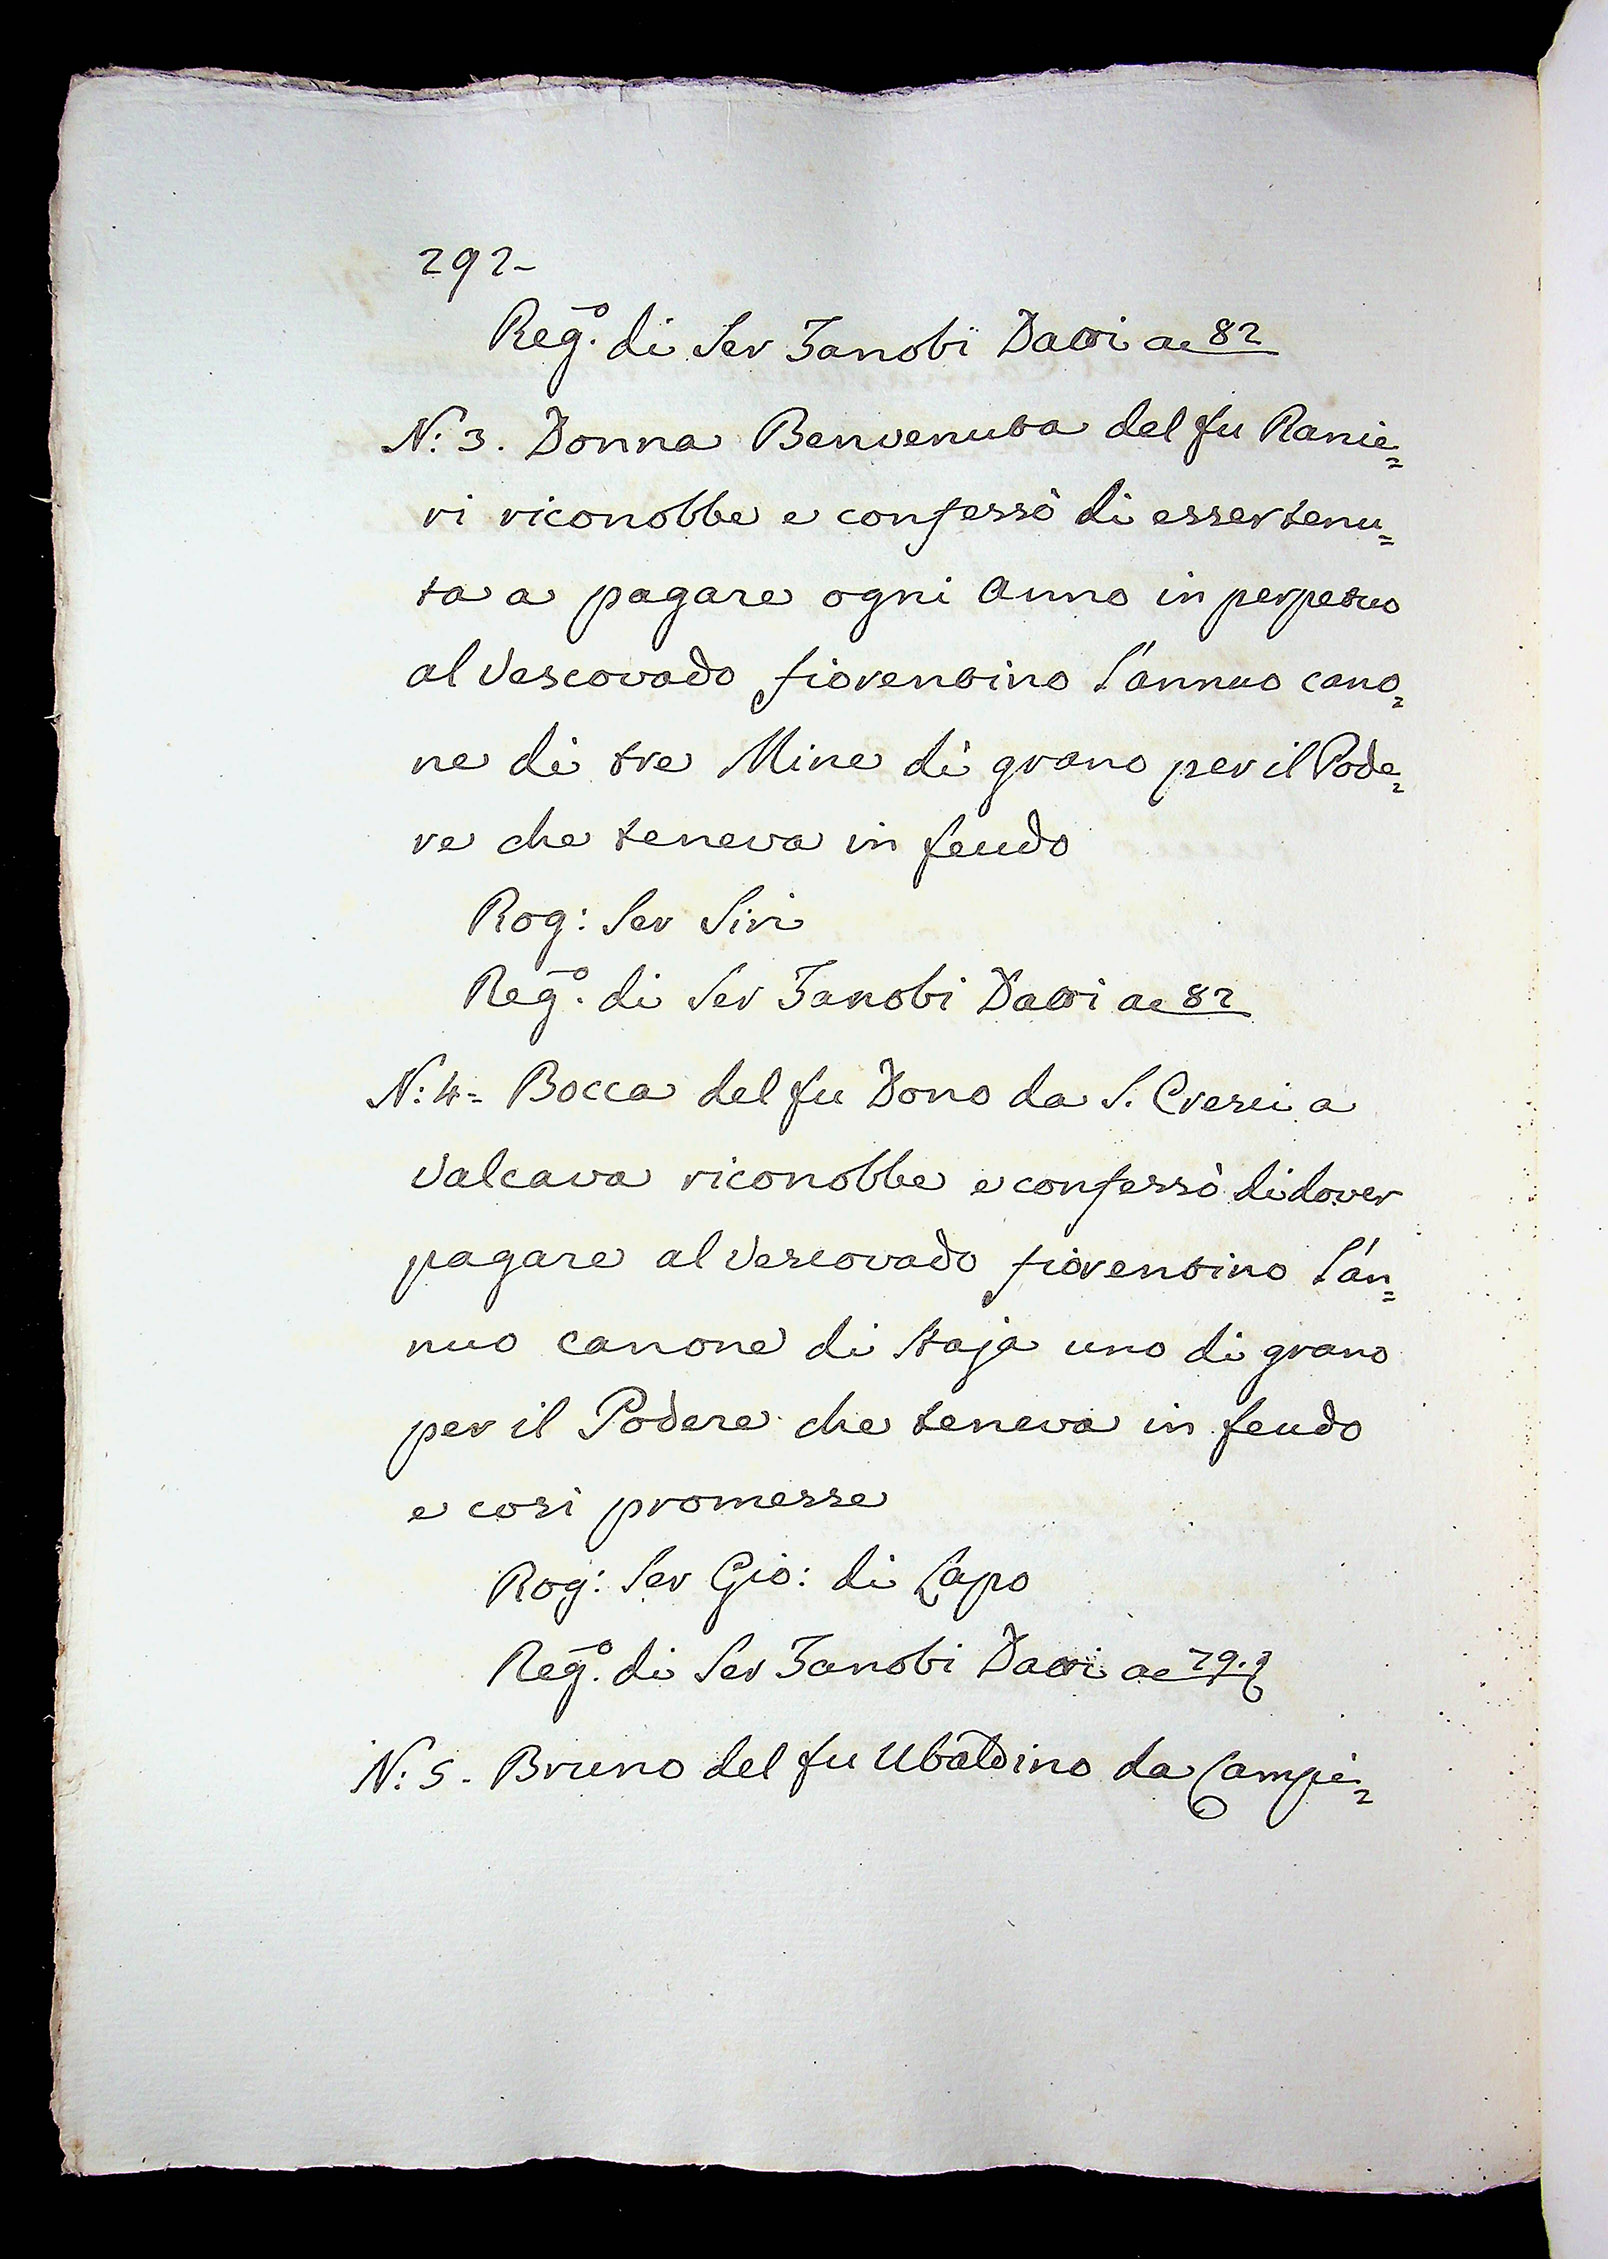 292-
Reg.o di Ser Zanobi Datti a c 82
N: 3. Donna Benvenuta del fu Ranie=
ri riconobbe e confessò di esser tenu=
ta a pagare ogni Anno in perpetuo
al Vescovado fiorentino l'annuo cano=
ne di tre Mine di grano per il Pode=
re che teneva in feudo
Rog: Ser Siri
Reg.o di Ser Zanobi Datti a c 82
N: 4= Bocca del fu Dono da S. Cresci a
Valcava riconobbe e confessò di dover
pagare al Vescovado fiorentino l'an=
nuo canone di Staja uno di grano
per il Podere che teneva in feudo
e così promesse
Rog: Ser Gio: di Lapo
Reg.o di Ser Zanobi Datti a c 79.
N: 5. Bruno del fu Ubaldino da Campi=